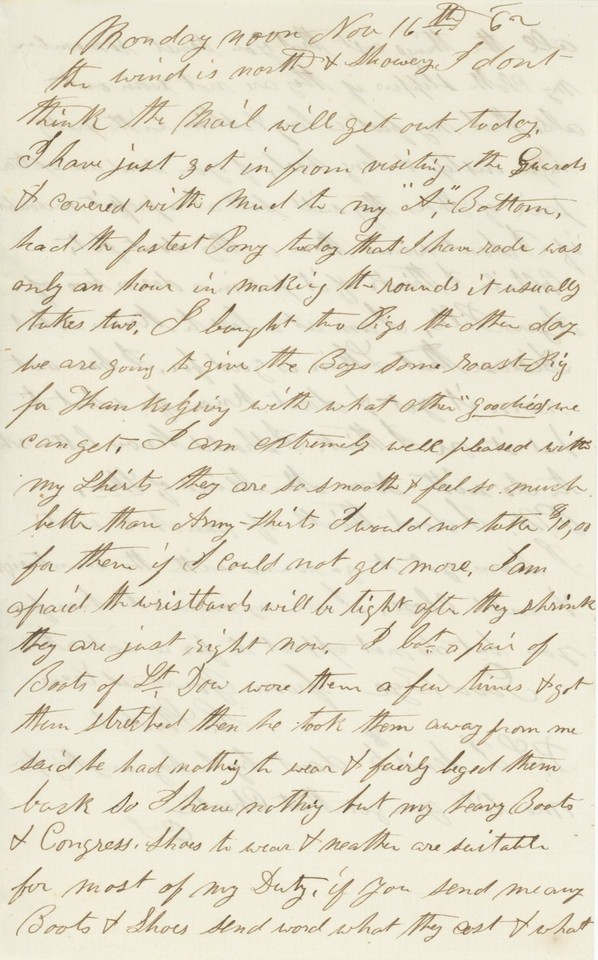 Monday noon Nov 16th 62
the wind is north & showery I dont
think the Mail will get out today.
I have just got in from visiting the Guards
& covered with Mud to my "A," Bottom,
had the fastest Pony today that I have rode was
only an hour in making the rounds it usually
takes two. I bought two Pigs the other day
we are going to give the Boys some roast-Pig
for ThanksGiving with what other "goodies" we
can get. I am extremely well pleased with
my Shirts they are so smooth & feel so much
better than Army-Shirts I would not take $10,00
for them if I could not get more. I am
afraid the wristbands will be tight after they shrink
they are just right now. I bot. a pair of
Boots of Lt. Dow wore them a few times & got
them streched then he took them away from me
said he had nothing to wear & fairly beged them
back so I have nothing but my heavy Boots
& Congress. Shoes to wear & neather are suitable
for most of my Duty. if you send me any
Boots & Shoes send word what they cost & what